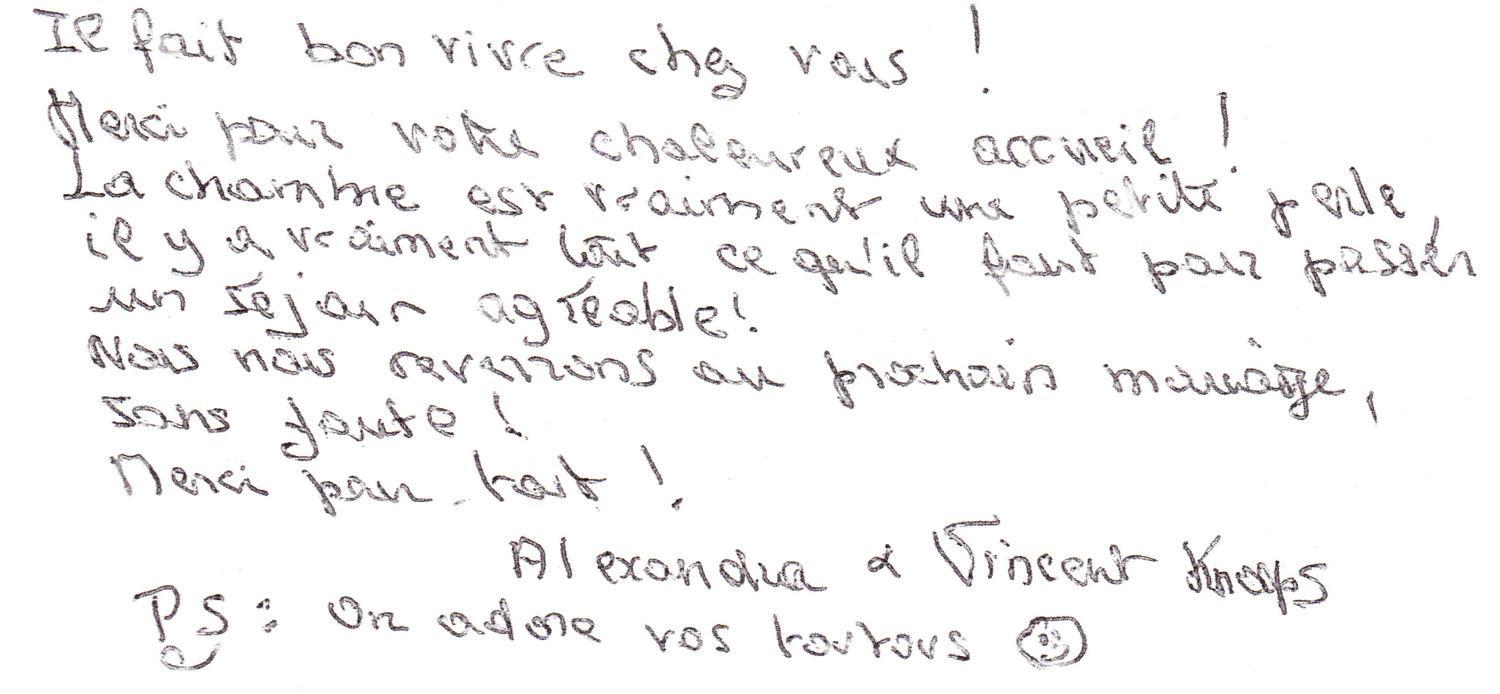 Il fait bon vivre chez vous !
Merci pour votre chaleureux accueil !
La chambre est vraiment une petite perle,
il y a vraiment tout ce qu'il faut pour passer
un séjour agréable !
Nous nous reverrons au prochain mariage,
sans faute !
Merci pour tout !
Alexandra & Vincent Knaps
PS : On adore vos toutous